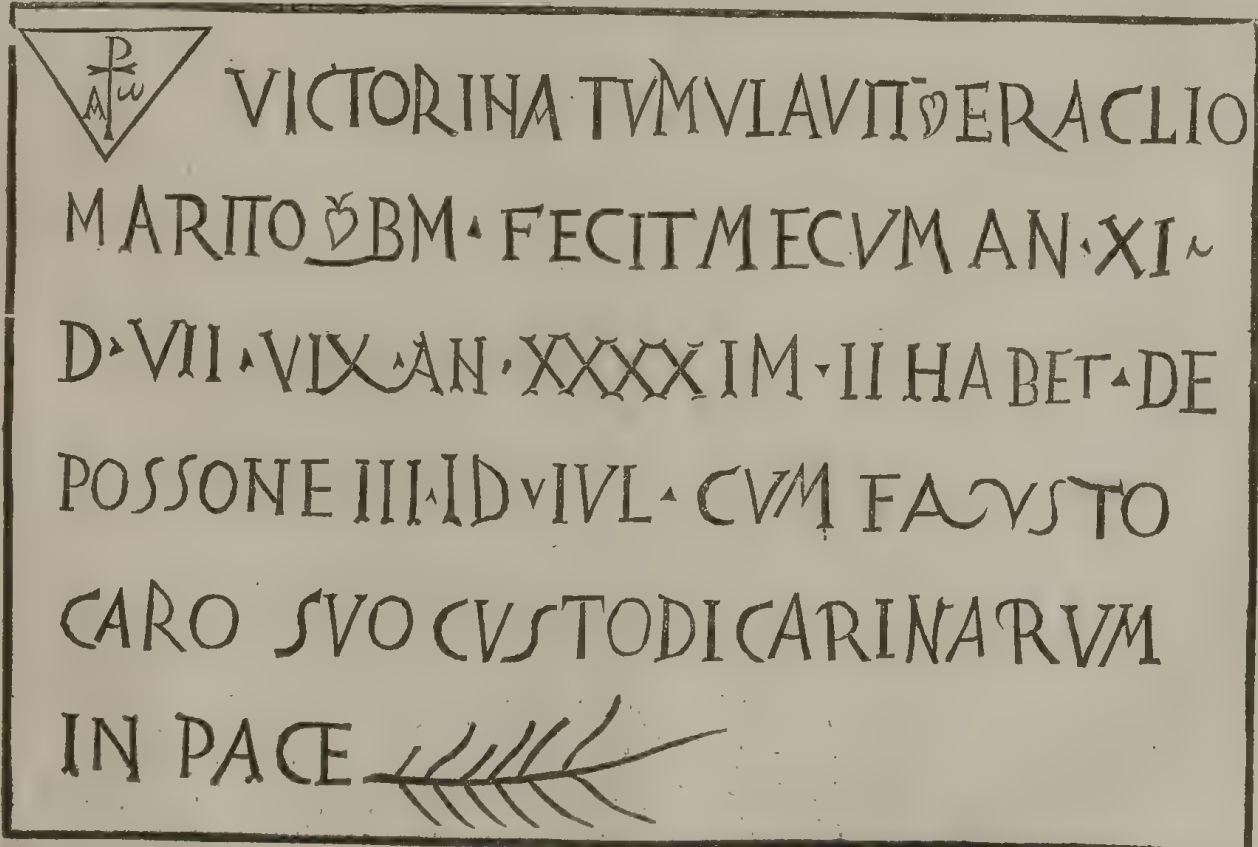 VICTORINA TVMVLAVIT ERACLIO
MARITO BM · FECIT MECVM AN · XI
D · VII · VIX · AN · XXXXI M · II HABET · DE
POSSONE III · ID · IVL · CVM FAVSTO
CARO SVO CVSTODI CARINARVM
IN PACE